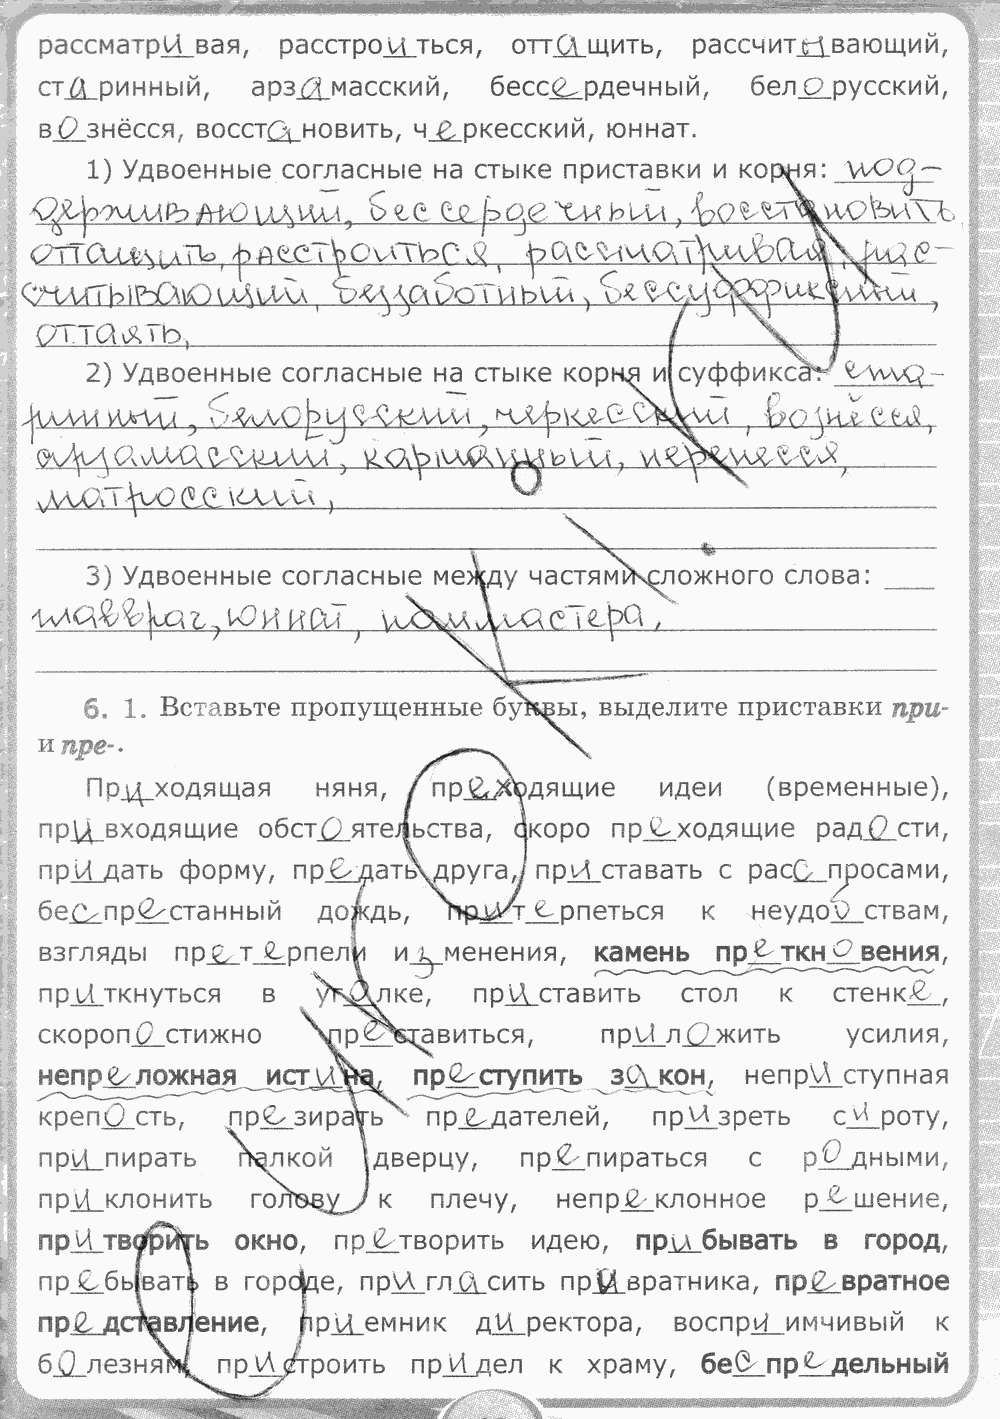 рассматривая, расстроиться, оттащить, рассчитывающий,
старинный, арзамасский, бессердечный, белорусский,
вознёсся, восстановить, черкесский, юннат.
1) Удвоенные согласные на стыке приставки и корня: под-
держивающий, бессердечный, восстановить
оттащить, расстроиться, рассматривая, рас-
считывающий, беззаботный, бессуффиксный,
оттаять,
2) Удвоенные согласные на стыке корня и суффикса: ста-
ринный, белорусский, черкесский, вознёсся,
арзамасский, карманный, перенесся,
матросский,
3) Удвоенные согласные между частями сложного слова:
главврач, юннат, поммастера,
6. 1. Вставьте пропущенные буквы, выделите приставки при-
и пре-.
Приходящая няня, преходящие идеи (временные),
привходящие обстоятельства, скоро преходящие радости,
придать форму, предать друга, приставать с расспросами,
беспрестанный дождь, притерпеться к неудобствам,
взгляды претерпели изменения, камень преткновения,
приткнуться в уголке, приставить стол к стенке,
скоропостижно преставиться, приложить усилия,
непреложная истина, преступить закон, неприступная
крепость, презирать предателей, призреть сироту,
припирать палкой дверцу, препираться с родными,
приклонить голову к плечу, непреклонное решение,
притворить окно, претворить идею, прибывать в город,
пребывать в городе, пригласить привратника, превратное
представление, приемник директора, восприимчивый к
болезням, пристроить придел к храму, беспредельный
СУРОКИ.RU